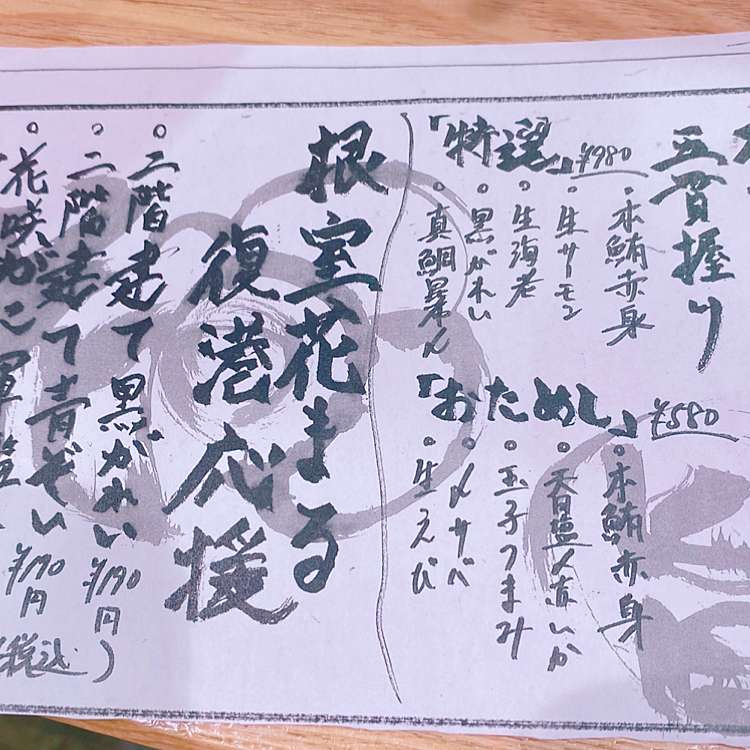 五貫握り
「特選」¥980
。本鮪赤身
。生サーモン
。生海老
。黒がれい
。真鯛昆〆
「おためし」¥580
。本鮪赤身
。天日塩人真いか
。玉子つまみ
。〆サバ
。生えび
根室花まる
復港応援
。二階建て黒がれい ¥190円
。二階建て青ぞい ¥190円
。花咲がに軍艦
税込)